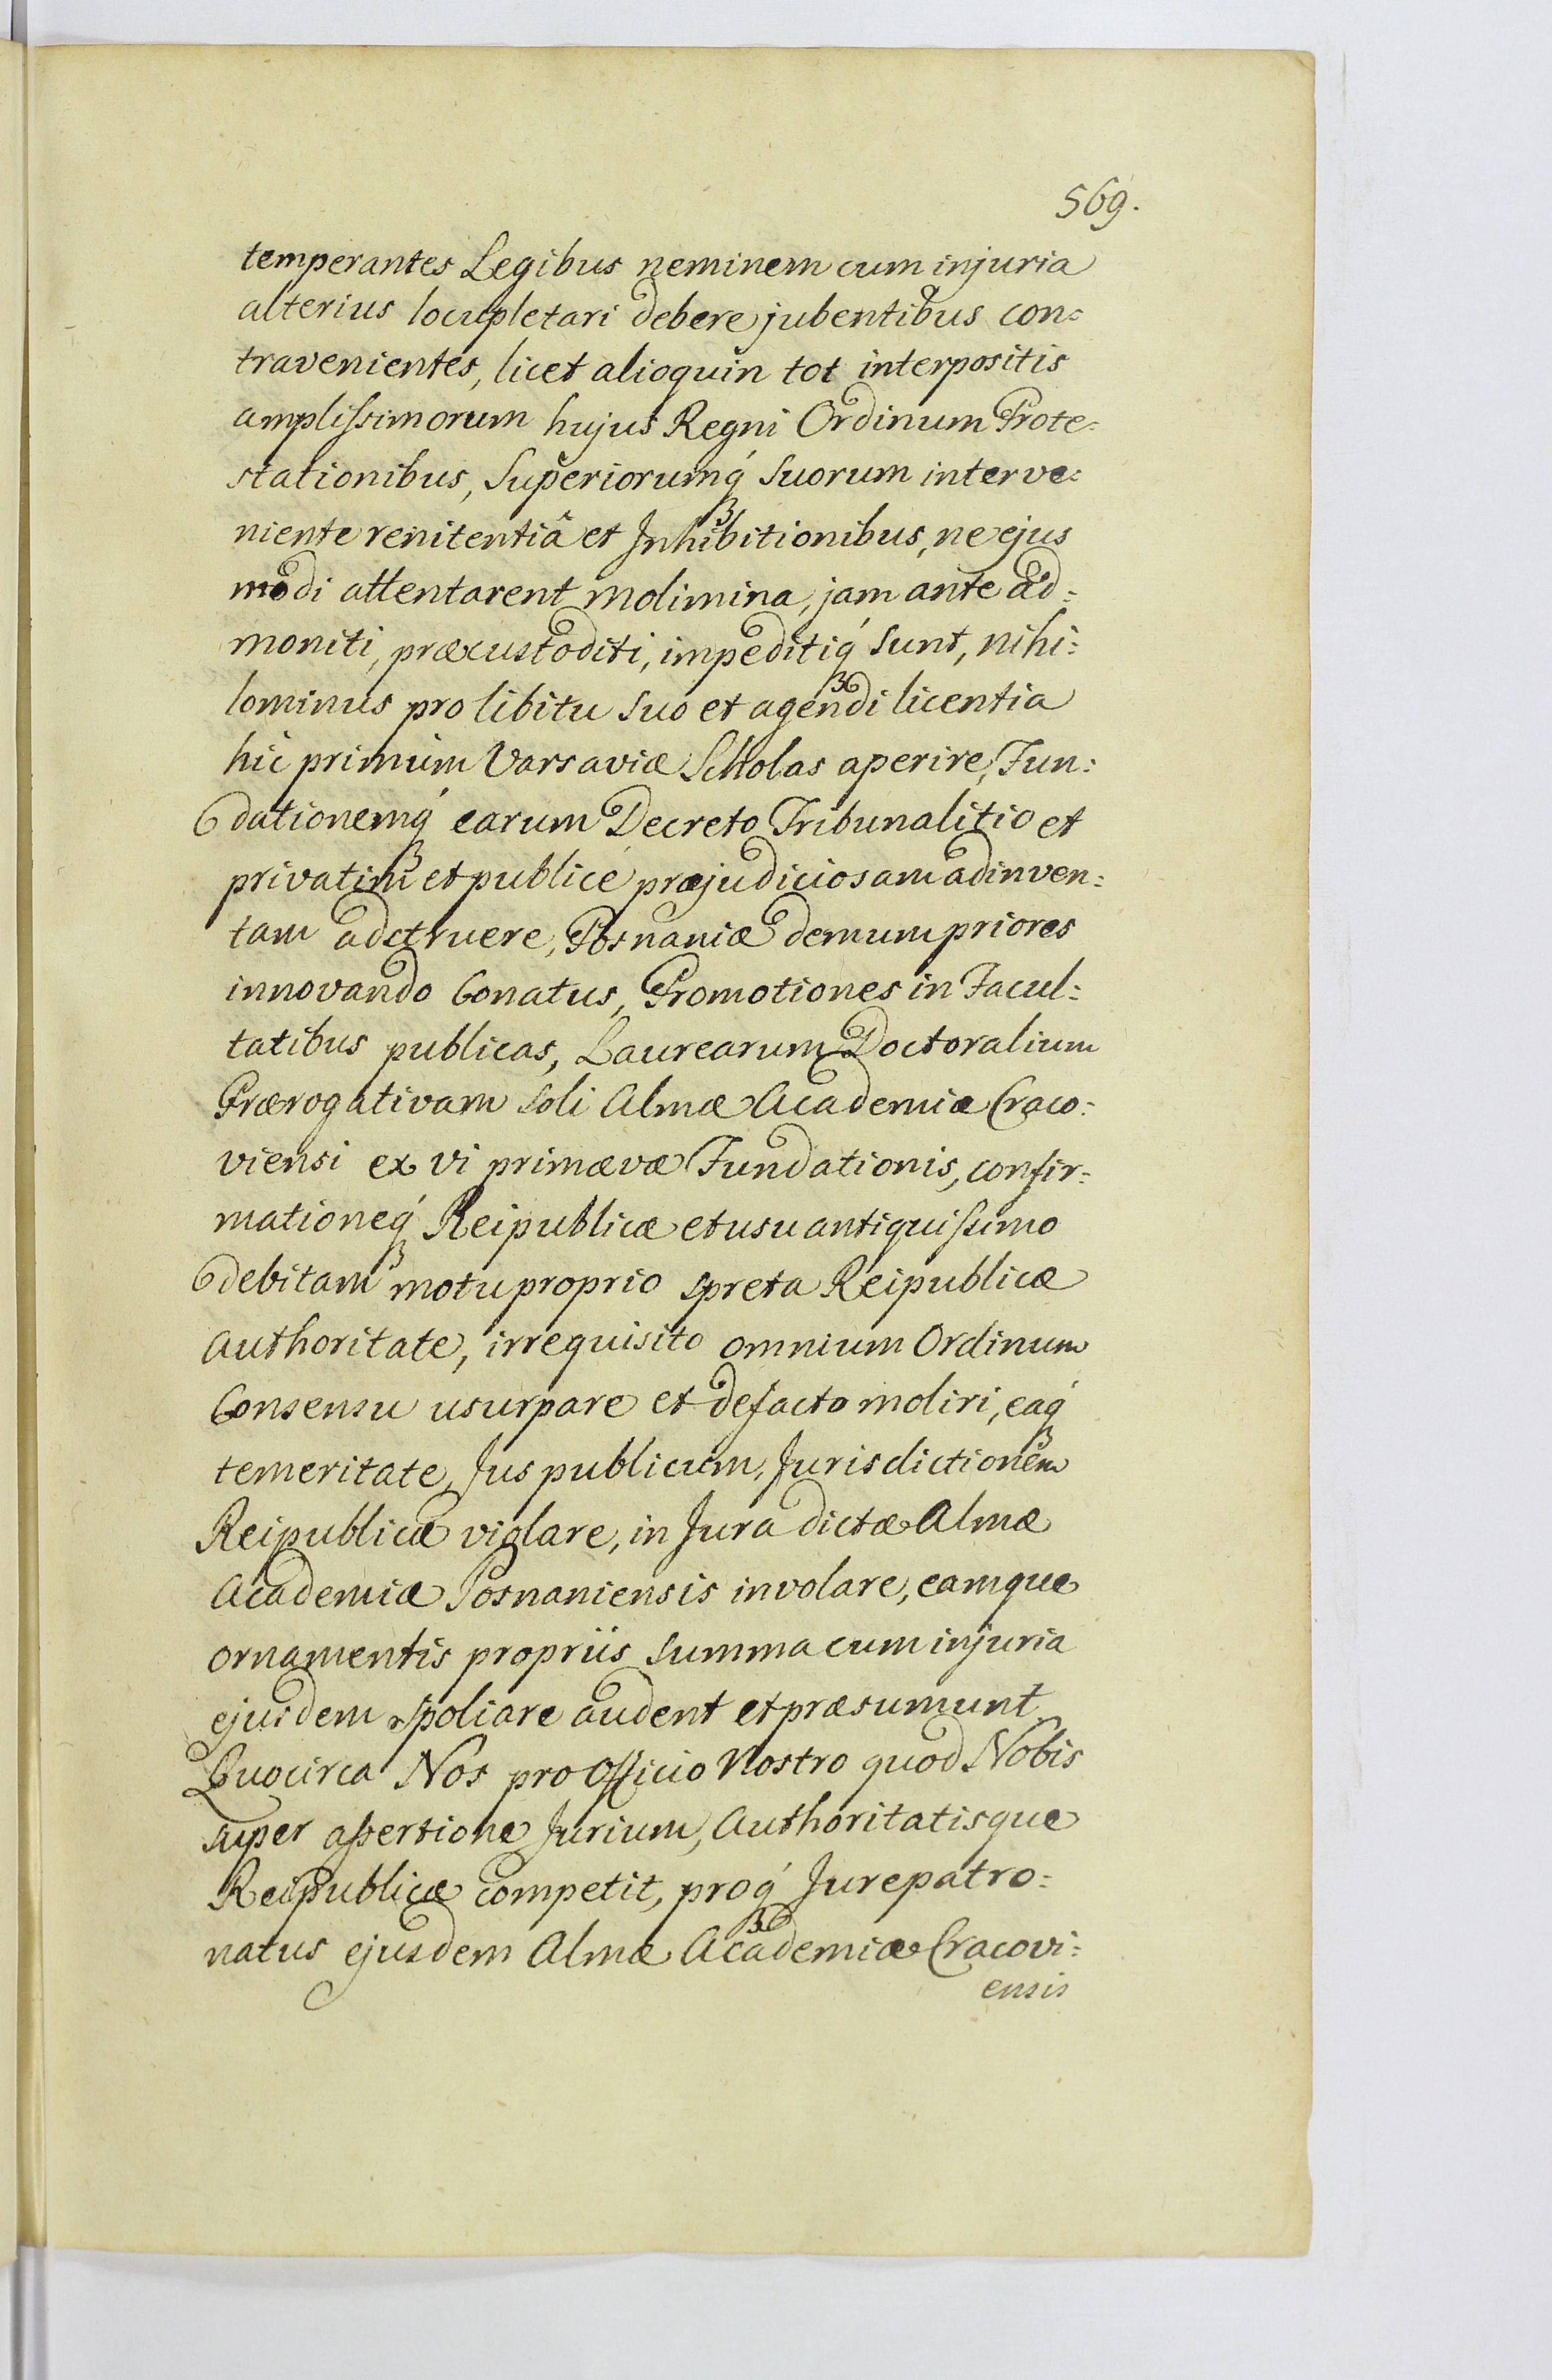 569.
temperantes Legibus neminem cum injuria
alterius locupletari debere jubentibus con=
travenientes, licet alioquin tot interpositis
amplissimorum hujus Regni Ordinum Prote=
stationibus, Superiorumq́ꝫ Suorum interve=
niente renitentiâ et Inhibitionibus, ne ejus
modi attentarent molimina, jam ante ad=
moniti, præcustoditi, impeditiq́ꝫ sunt, nihi=
lominus pro libitu suo et agendi licentia
hic primùm Varsaviæ Scholas aperire, Fun=
dationemq́ꝫ earum Decreto Tribunalitio et
privatim et publicè præjudiciosam adinven=
tam adstruere, Posnaniæ demum priores
innovando Conatus, Promotiones in Facul=
tatibus publicas, Laurearum Doctoralium
Prærogativam soli Almæ Academiæ Craco=
viensi ex vi primævæ Fundationis, confir=
mationeq́ꝫ Reipublicæ et usu antiquissimo
debitam motu proprio spreta Reipublicæ
Authoritate, irrequisito omnium Ordinum
Consensu usurpare et de facto moliri, eaq́ꝫ
temeritate, Jus publicum, Jurisdictionem
Reipublicæ violare, in Jura dictæ Almæ
Academiæ Posnaniensis involare, eamque
ornamentis propriis summa cum injuria
ejusdem spoliare audent et præsumunt.
Quocirca Nos pro Officio Nostro quod Nobis
super assertione Jurium, Authoritatisque
Reipublicæ competit, proq́ꝫ Jurepatro=
natus ejusdem Almæ Academiæ Cracovi=
ensis